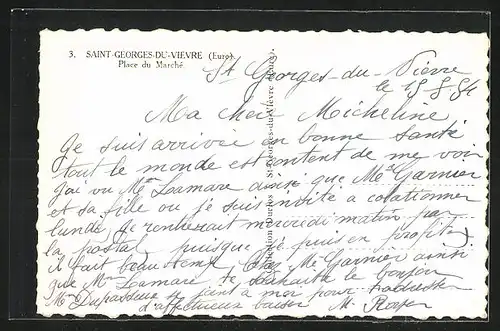 3. SAINT-GEORGES-DU-VIÈVRE (Eure).
Place du Marché
St Georges-du-Vièvre
le 15.8.54
Ma cher Micheline
Je suis arrivée en bonne santé
tout le monde est content de me voir
j'ai vu Me Lamare ainsi que Me Garnier
et sa fille ou je suis invité a colationner
lundi je rentrerait mercredi matin par
la postal puisque je puis en profité
il fait beau temp Me Garnier ainsi
que Me Lamare te souhaite le bonjour
Me Dupasseur se joint a moi pour
d'affectueux baiser M.
Collection Duclos St-Georges-du-Vièvre (Eure).